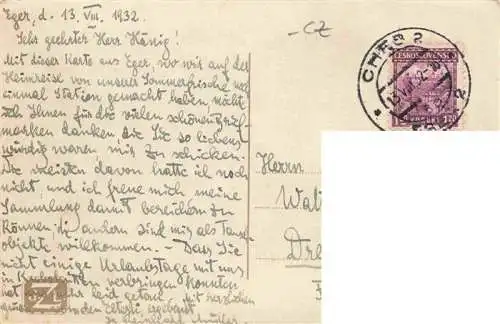 Eger, d. 13. VIII. 1932.
Sehr geehrter Herr König!
Mit dieser Karte aus Eger, wo wir auf der
Heimreise von unserer Sommerfrische noch
einmal Station gemacht haben, möchte
ich Ihnen für die vielen schönen
marken danken, die Sie so liebens-
würdig waren mir zu schicken.
Die meisten davon hatte ich noch
nicht, und ich freue mich meine
Sammlung damit bereichern zu
können; die andern sind mir als Tausch-
objekte willkommen. – Dass Sie
nicht einige Urlaubstage mit uns
in verbringen konnten
hat sehr leid getan. Mit herzlichen
ergebenst
Müller.
-CZ
CHEB 2
ČESKOSLOVENSKO
1.20
Herrn
Walt
Dre